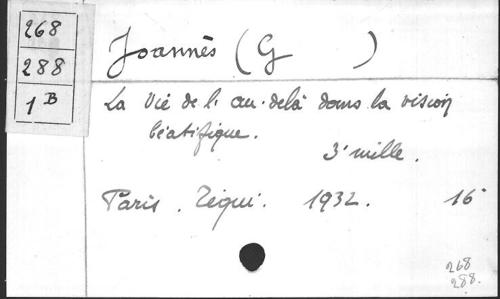 268
288
1 B
Joannès (G )
La Vie de l'au-delà dans la vision
béatifique.
3e mille.
Paris. Téqui. 1932. 16
268
288.